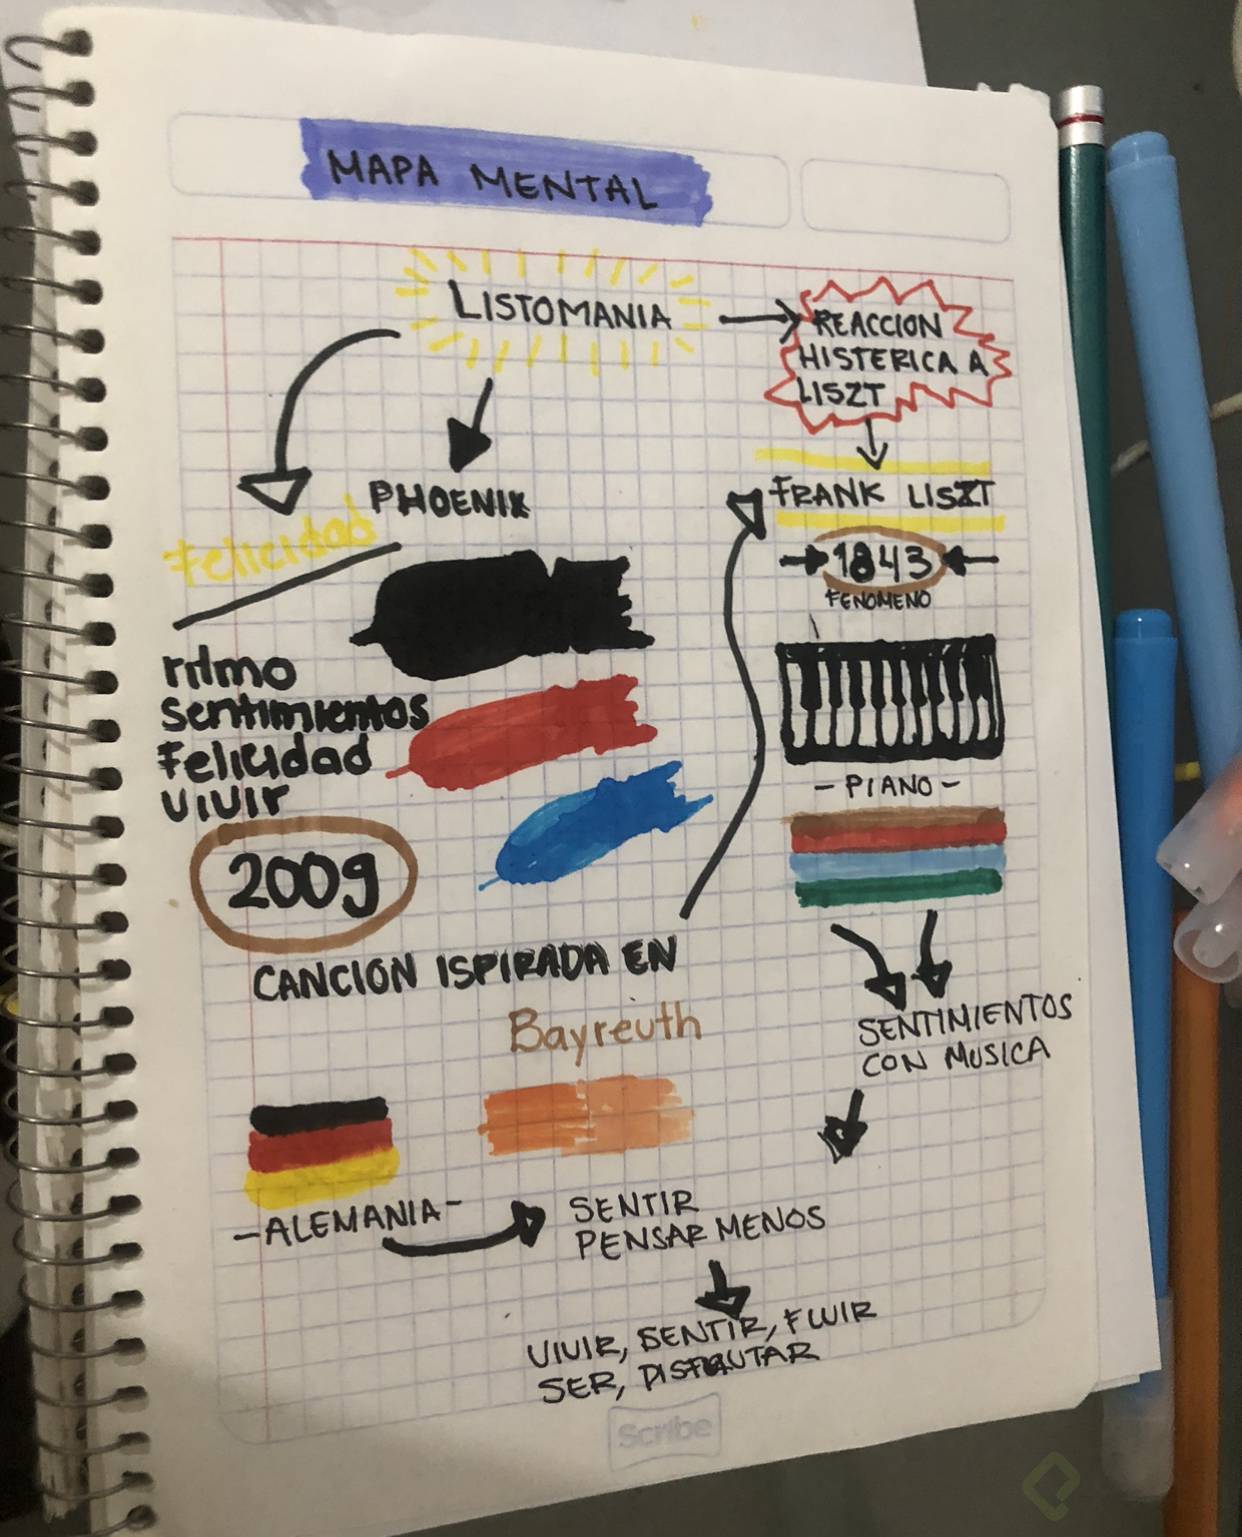 MAPA MENTAL
LISTOMANIA
REACCION
HISTERICA A
LISZT
FRANK LISZT
1843
FENOMENO
- PIANO -
SENTIMIENTOS
CON MUSICA
PHOENIX
Felicidad
ritmo
sentimientos
Felicidad
vivir
2009
CANCION ISPIRADA EN
Bayreuth
-ALEMANIA-
SENTIR
PENSAR MENOS
VIVIR, SENTIR, FLUIR
SER, DISFRUTAR
Scribe